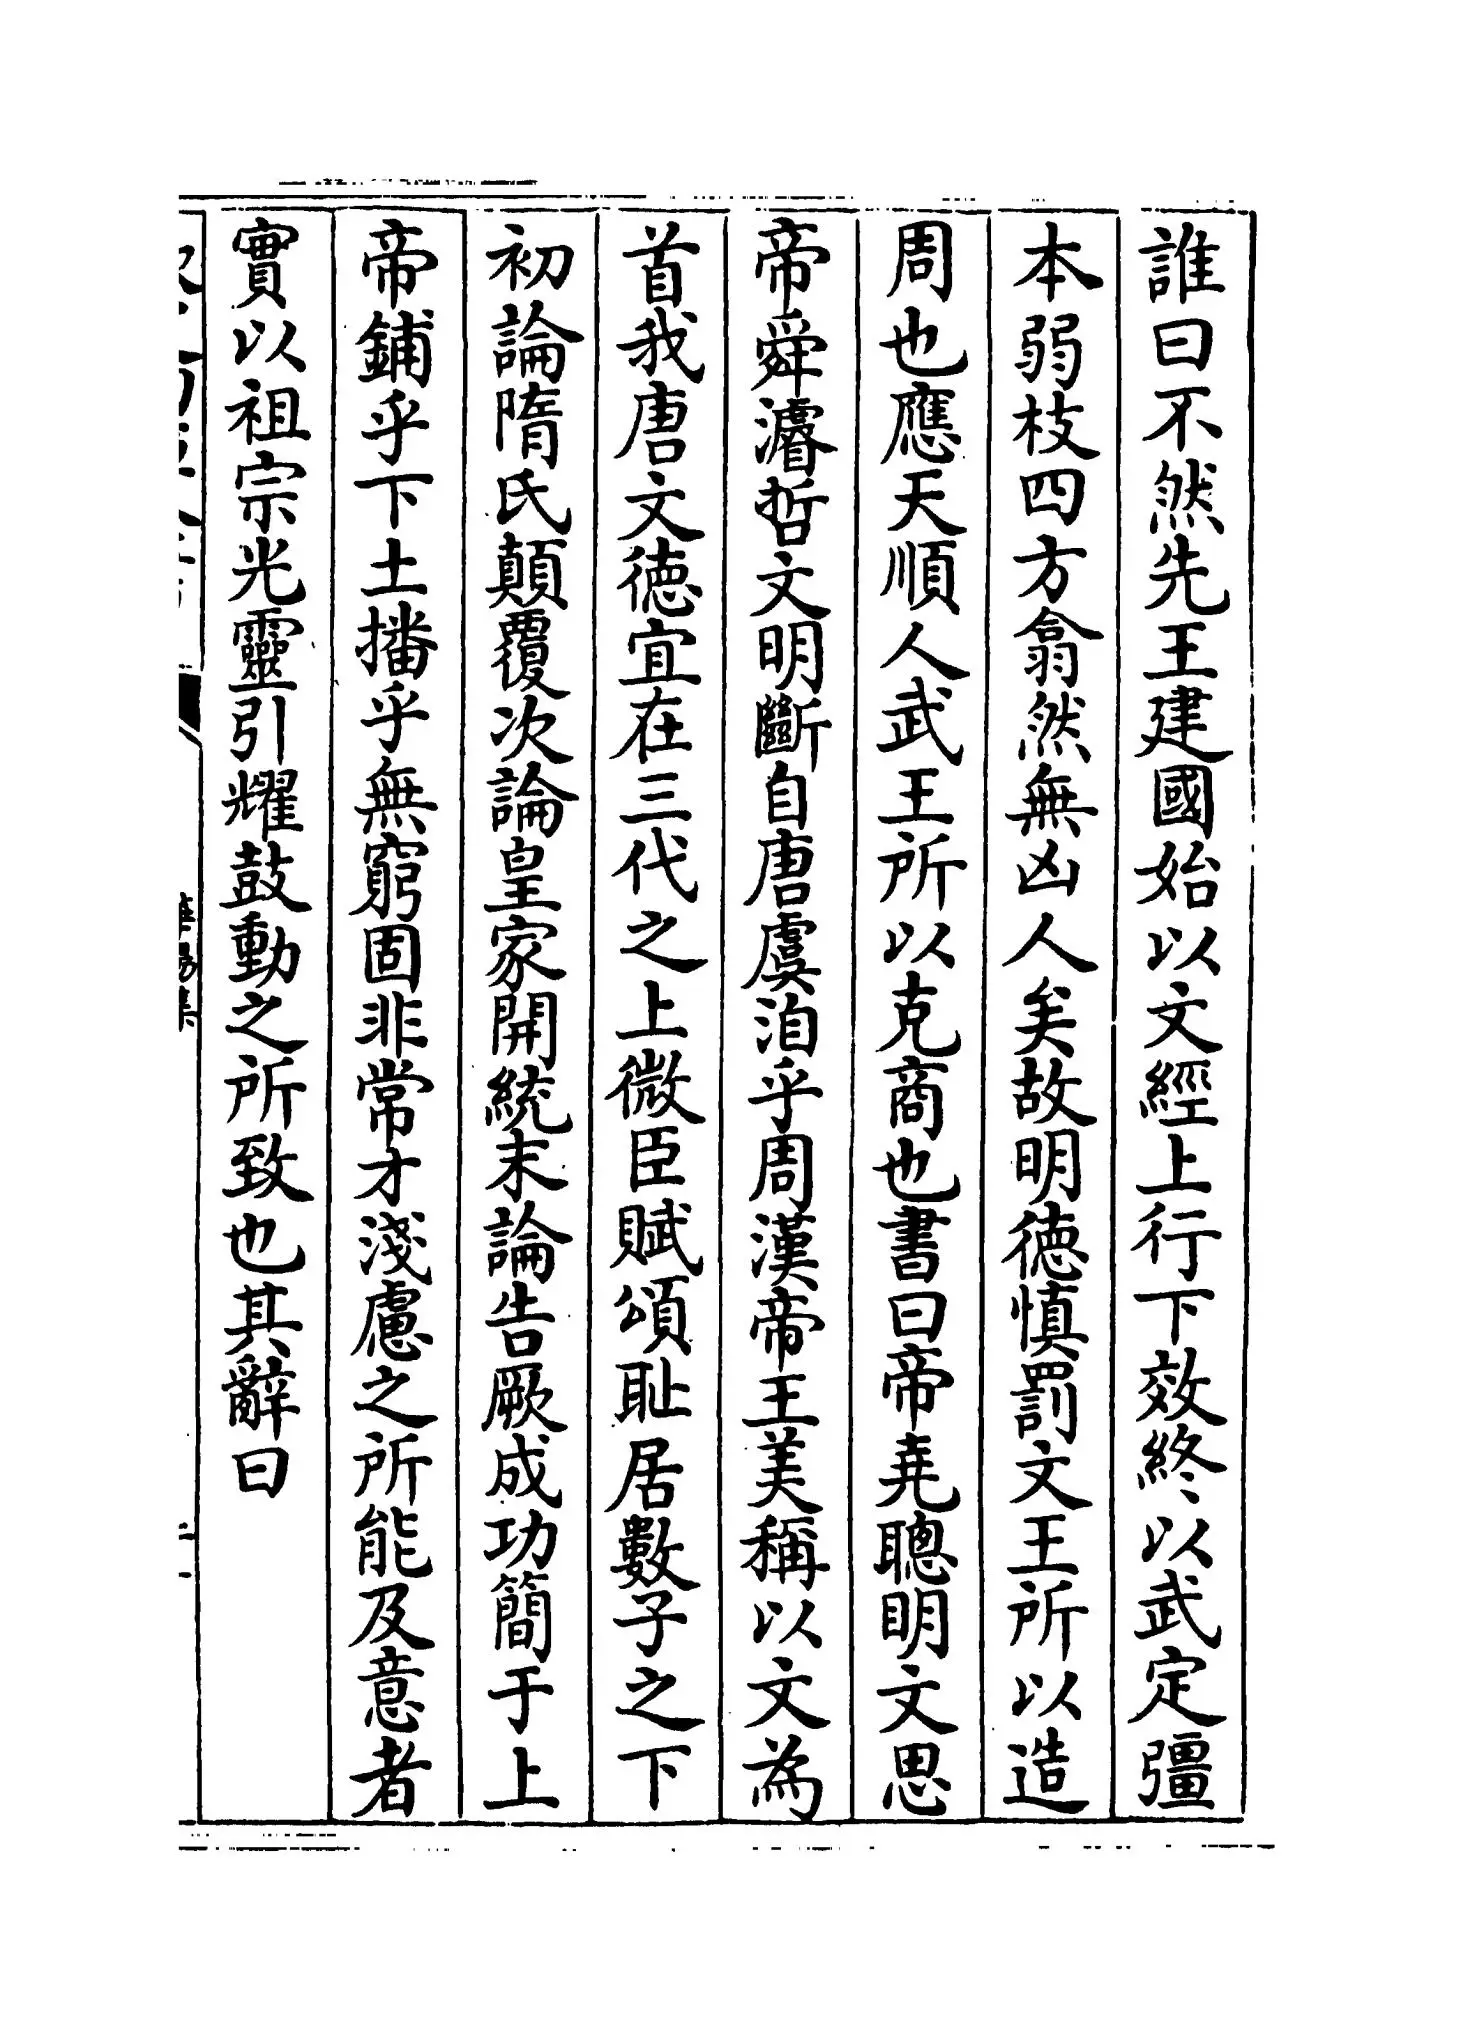 誰曰不然先王建國始以文經上行下效終以武定彊
本弱枝四方翕然無凶人矣故明徳慎罰文王所以造
周也應天順人武王所以克商也書曰帝堯聰明文思
帝舜濬哲文明斷自唐虞洎乎周漢帝王美稱以文為
首我唐文徳宜在三代之上微臣賦頌恥居數子之下
初論隋氏顛覆次論皇家開統末論告厥成功簡于上
帝鋪乎下土播乎無窮固非常才淺慮之所能及意者
實以祖宗光靈引耀鼓動之所致也其辭曰